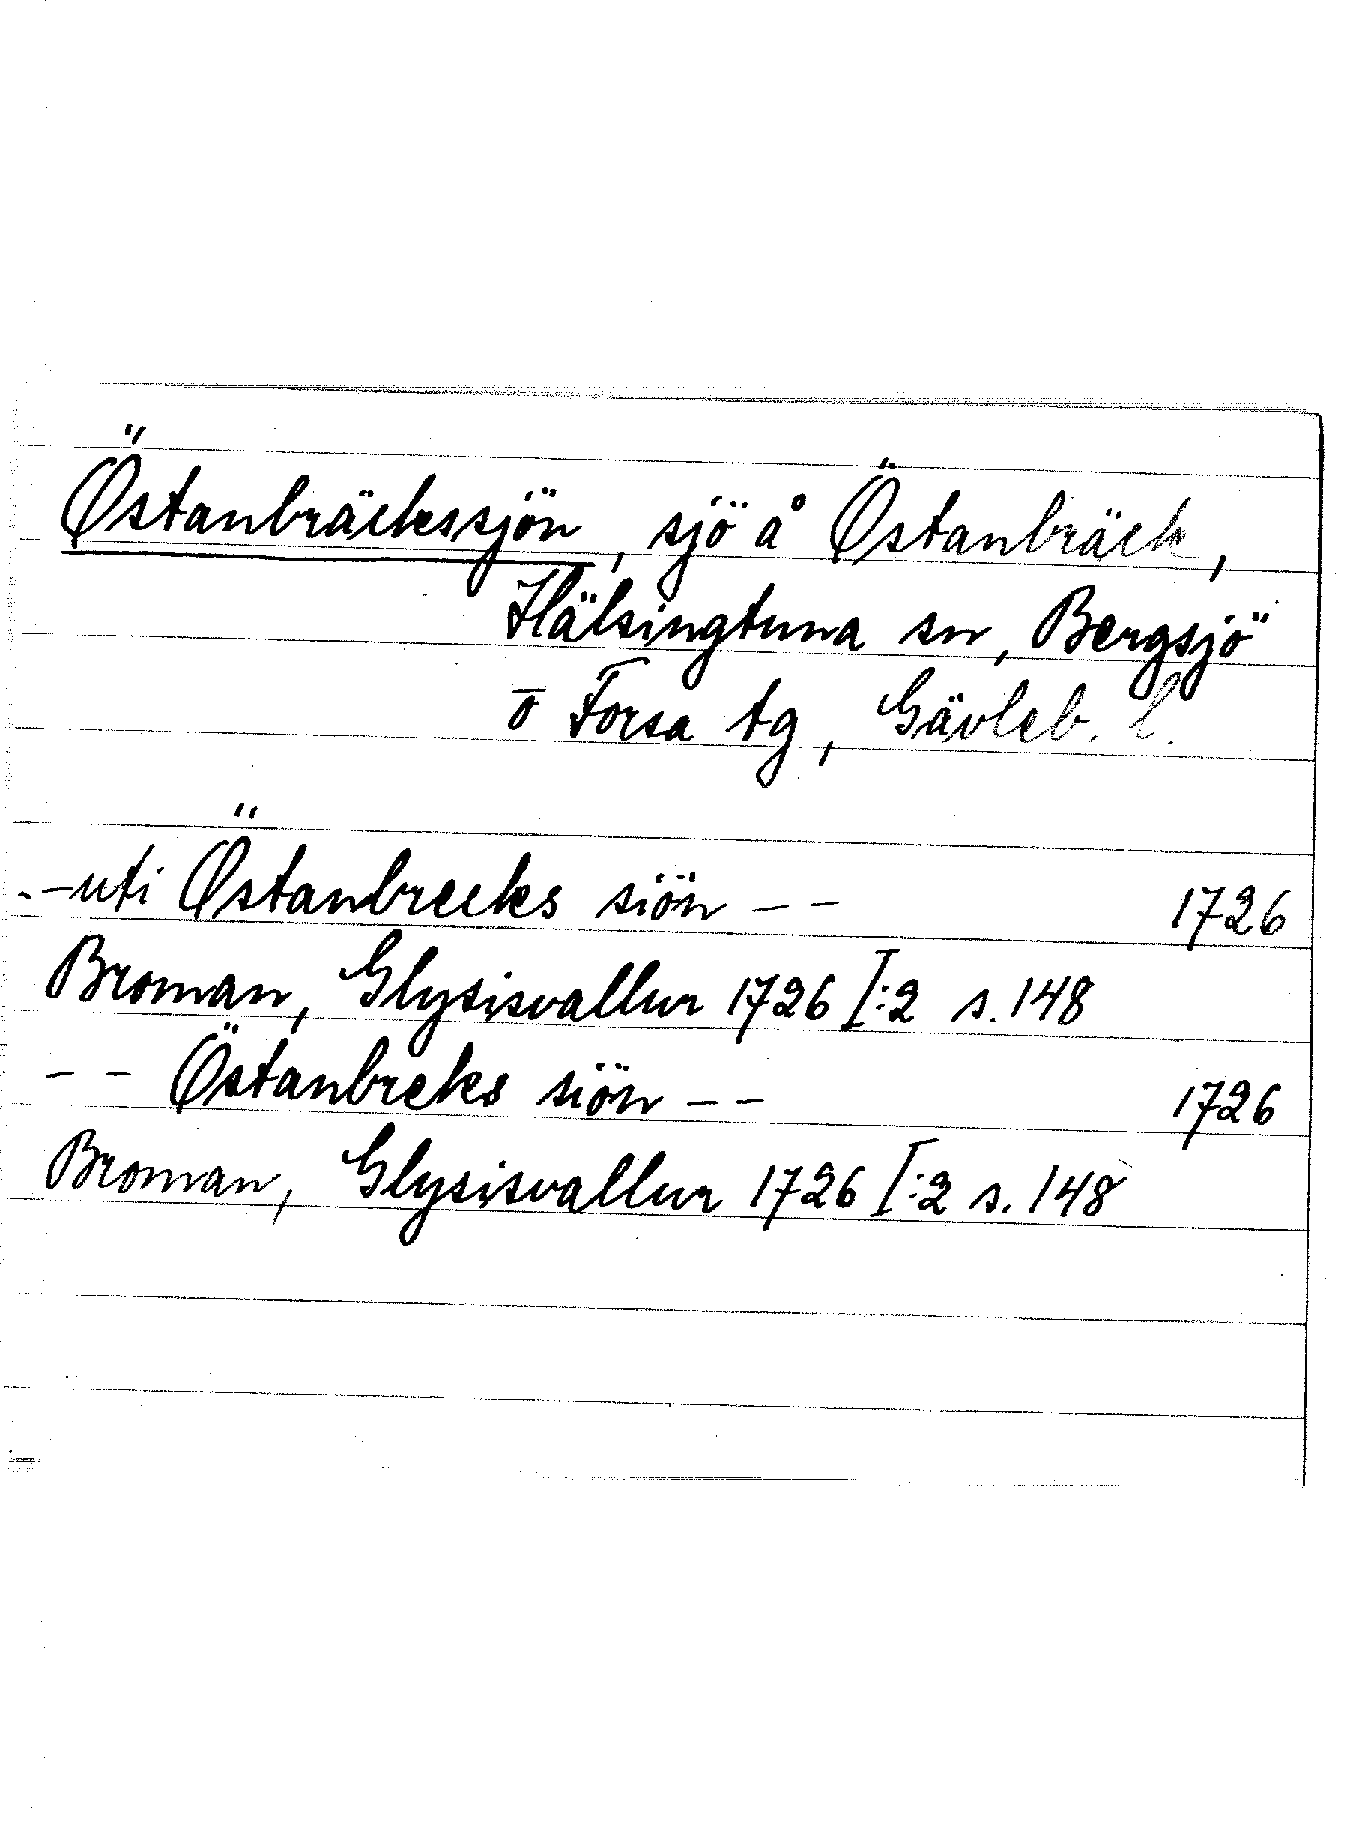 Östanbräckssjön, sjö å Östanbräck,
Hälsingtuna sn, Bergsjö
o Forsa tg, Gävleb. l.
--uti Östanbrecks siön -- 1726
Broman, Glysisvallur 1726 I:2 s. 148
-- Östanbreks siön -- 1726
Broman, Glysisvallur 1726 I:2 s. 148